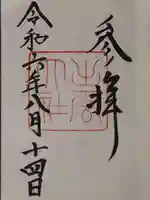 参拝
令和六年八月十四日